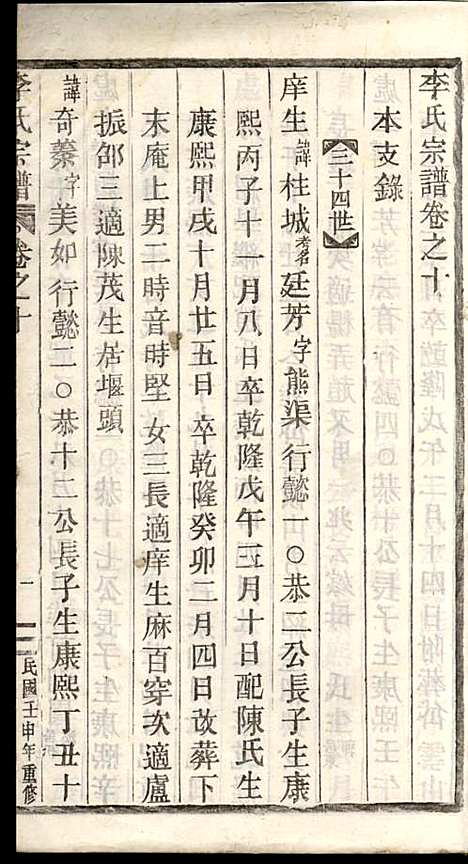 李氏宗譜卷之十
本支錄
三十四世
庠生諱柱城考名廷芳字熊渠行懿一○恭二公長子生康
熙丙子十一月八日卒乾隆戊午三月十日配陳氏生
康熙甲戌十月廿五日卒乾隆癸卯二月四日改葬下
末庵上男二時音時堅女三長適庠生麻百穿次適盧
振邵三適陳茂生居堰頭
諱奇蓁字美如行懿二○恭十二公長子生康熙丁丑十
李氏宗譜 卷之十
一
民國壬申年重修